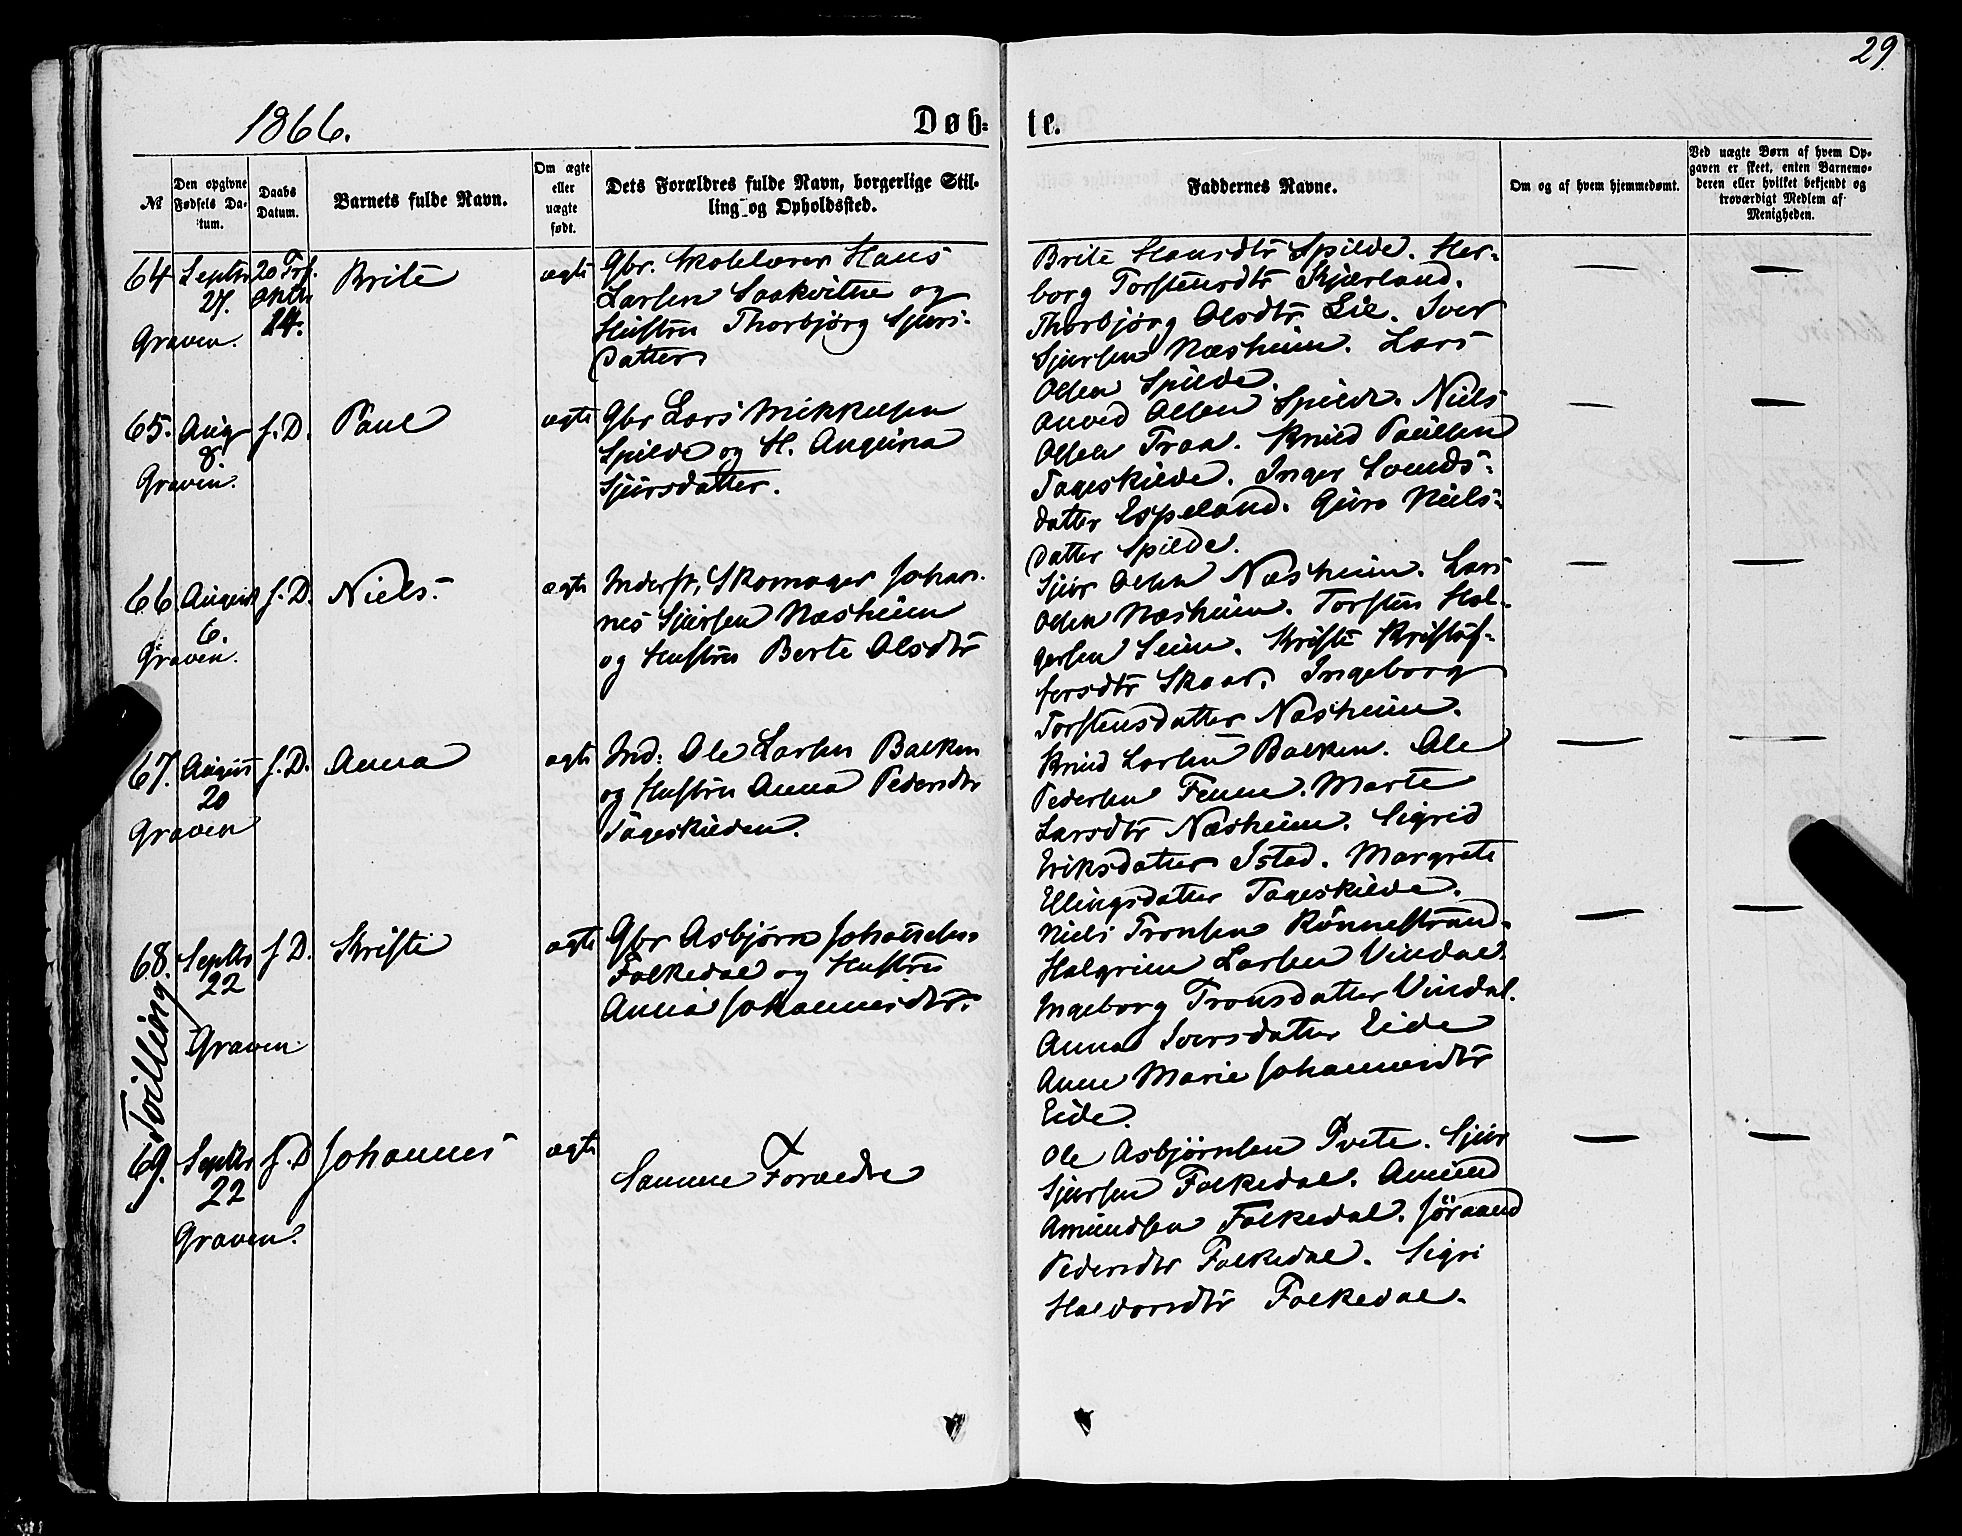 29
1866.
Døb- te.
№
Den opgivne Fødsels Datum.
Daabs Datum.
Barnets fulde Navn.
Om ægte eller uægte født.
Dets Forældres fulde Navn, borgerlige Stilling og Opholdssted.
Faddernes Navne.
Om og af hvem hjemmedøbt.
Ved uægte Børn af hvem Opgaven er skeet, enten Barnemoderen eller hvilket bekjendt og troværdigt Medlem af Menigheden.
64 Septbr 27. Graven.
20 Trf. Oktbr 14.
Brite
ægte
Gbr. Skolelærer Hans
Larsen Saakvitne og
Hustru Thorbjørg Sjurs-
datter
Brite Hansdtr Spilde. Her-
borg Torstensdtr Kjerland.
Thorbjørg Olsdtr Lie. Iver
Sjursen Næsheim. Lars
Olsen Spilde.
65. Aug 8 Graven.
f. D.
Paul
ægte
Gbr Lars Mikkelsen
Spilde og H. Angunna
Sjursdatter.
Olsen Spilde. Niels
Olsen Traa. Knud Paulsen
Tageskilde. Inger Svends-
datter Espeland. Guro Niels-
datter Spilde.
66 August 6. Graven.
f. D.
Niels.
ægte
Inderst, Skomager Johan-
nes Sjursen Næsheim
og Hustru Berte Olsdtr
Sjur Olsen Næsheim. Lars
Olsen Næsheim. Torsten Hel-
gersen Seim. Kristi Kristof-
fersdtr Skaar. Ingeborg
Torstensdatter Næsheim.
67. August 20 Graven
f. D.
Anna
ægte
Ind: Ole Larsen Balken
og Hustru Anna Pedersdtr
Tageskilden.
Knud Larsen Balken. Ole
Pedersen Fenne. Marte
Larsdtr Næsheim. Sigrid
Eriksdatter Istad. Margrete
Ellingsdatter Tageskilde.
68. Septbr 22 Graven
f. D.
Kristi
ægte
Gbr Asbjørn Johannesen
Folkedal og Hustru
Anna Johannesdtr.
Niels Tronsen Rønnestrand.
Halgrim Larsen Vindal.
Ingeborg Tronsdatter Vindal.
Anna Iversdatter Eide
Anne Marie Johannesdtr
Eide.
Tvilling
69. Septbr 22 Graven.
f. D
Johannes
ægte
Samme Forældre
Ole Asbjørnsen Tvete. Sjur
Sjursen Folkedal. Amund
Amundsen Folkedal. Jøraand
Pedersdtr Folkedal. Sigri
Haldorsdtr Folkedal.